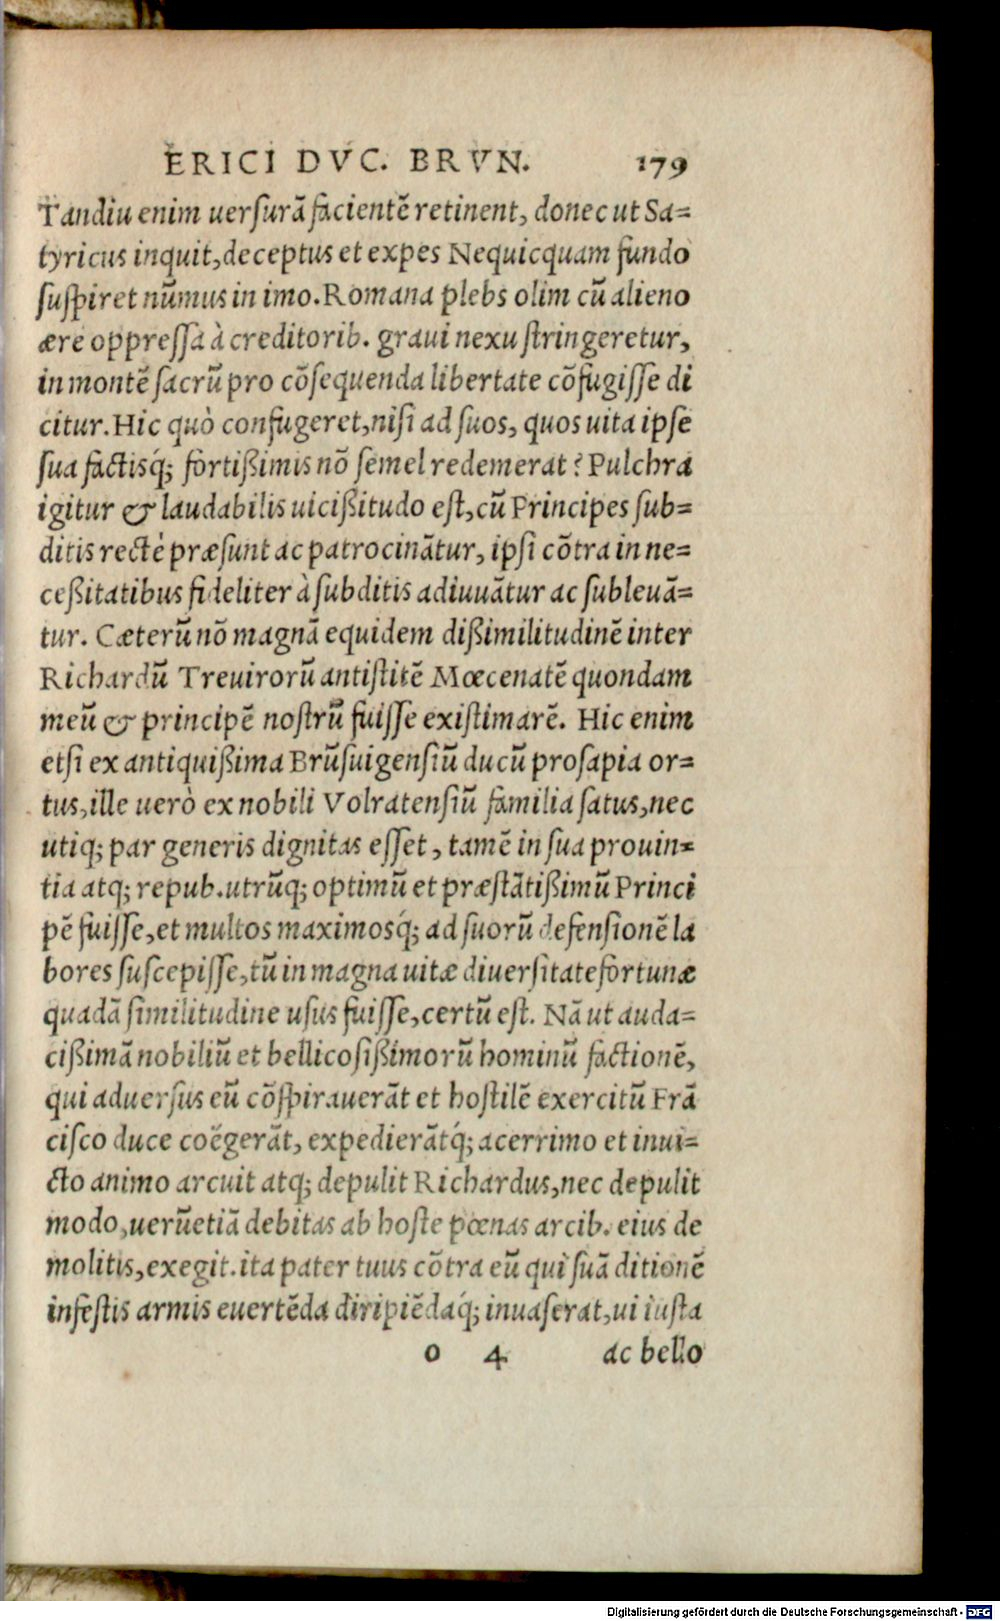 ERICI DVC. BRVN. 179
Tandiu enim uersurã facientẽ retinent, donec ut Sa=
tyricus inquit, deceptus et expes Nequicquam fundo
suspiret nũmus in imo. Romana plebs olim cũ alieno
ære oppressa à creditorib. graui nexu stringeretur,
in montẽ sacrũ pro cõsequenda libertate cõfugisse di
citur. Hic quò confugeret, nisi ad suos, quos uita ipse
sua factisq́; fortißimis nõ semel redemerat? Pulchra
igitur & laudabilis uicißitudo est, cũ Principes sub=
ditis rectè præsunt ac patrocinãtur, ipsi cõtra in ne=
ceßitatibus fideliter à subditis adiuuãtur ac subleuã=
tur. Cæterũ nõ magnã equidem dißimilitudinẽ inter
Richardũ Treuirorũ antistitẽ Mœcenatẽ quondam
meũ & principẽ nostrũ fuisse existimarẽ. Hic enim
etsi ex antiquißima Brũsuigensiũ ducũ prosapia or=
tus, ille uerò ex nobili Volratensiũ familia satus, nec
utiq; par generis dignitas esset, tamẽ in sua prouin=
tia atq; repub. utrũq; optimũ et præstãtißimũ Princi
pẽ fuisse, et multos maximosq́; ad suorũ defensionẽ la
bores suscepisse, tũ in magna uitæ diuersitate fortunæ
quadã similitudine usus fuisse, certũ est. Nã ut auda=
cißimã nobiliũ et bellicosißimorũ hominũ factionẽ,
qui aduersus eũ cõspirauerãt et hostilẽ exercitũ Frã
cisco duce coëgerãt, expedierãtq́; acerrimo et inui=
cto animo arcuit atq; depulit Richardus, nec depulit
modo, uerũetiã debitas ab hoste pœnas arcib. eius de
molitis, exegit. ita pater tuus cõtra eũ qui suã ditionẽ
infestis armis euertẽda diripiẽdaq́; inuaserat, ui iusta
o 4 ac bello
Digitalisierung gefördert durch die Deutsche Forschungsgemeinschaft - DFG